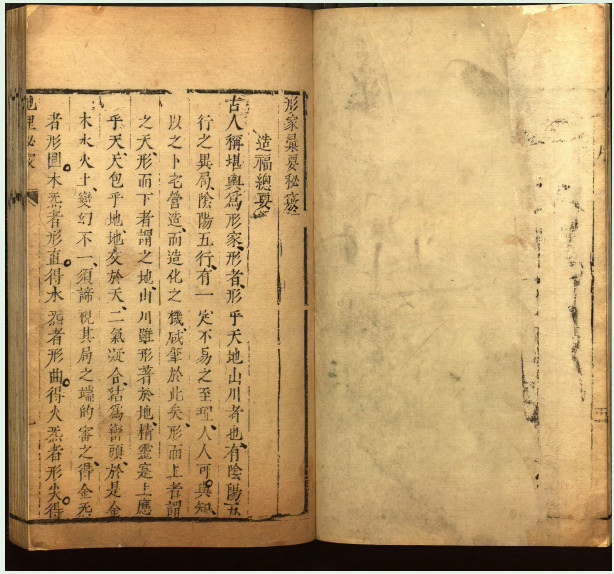 形家彙要秘竅
造福總要
古人稱堪輿爲形家、形者、形乎天地山川者也、有陰陽五
行之異局、陰陽五行、有一定不易之至理、人人可與知、
以之卜宅營造、而造化之機、咸肇於此矣、形而上者謂
之天、形而下者謂之地、山川雖形著於地、精靈寔上應
乎天、天包乎地、地交於天、二氣凝合、結爲巒頭、於是金
木水火土、變幻不一、須諦視其局之端的審之、得金炁
者形圓。木炁者形直。得水炁者形曲。得火炁者形尖。得
地理秘竅